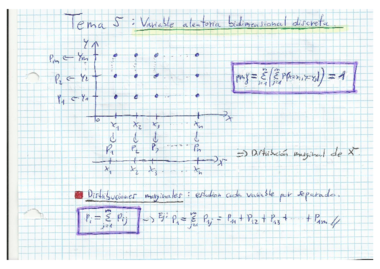 Tema 5 : Variable aleatoria bidimensional discreta
Y
Pm ← Ym
P2 ← Y2
P1 ← Y1
0 X1 X2 X3 ..... Xn X
P1 P2 P3 ..... Pn => Distribución marginal de X
X1 X2 X3 ..... Xn X
Distribuciones marginales : estudian cada variable por separado.
Pi = Σ Pij → Ej: P1 = Σ P1j = P11 + P12 + P13 + + P1m //